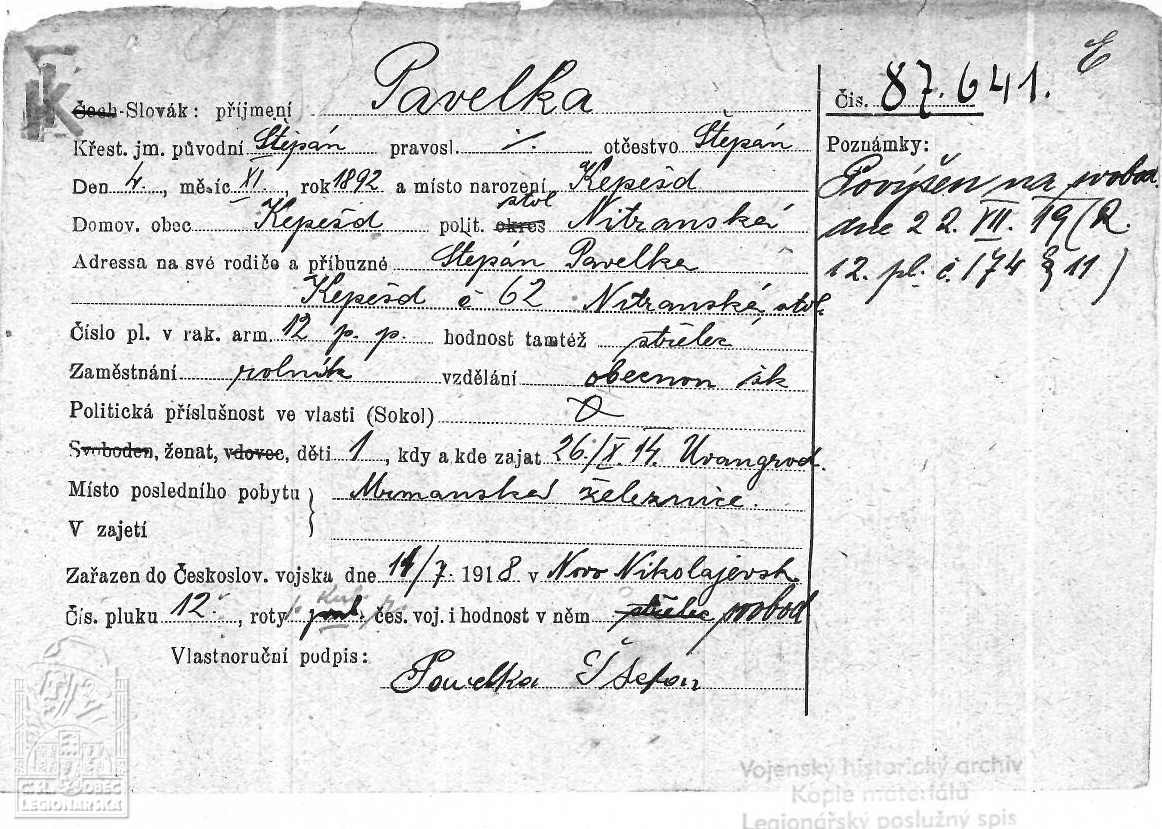 E
K
Čech-Slovák: příjmení Pavelka
čis. 87.641.
Křest. jm. původní Štěpán pravosl. ·/. otčestvo Štěpán
Poznámky:
Den 4. , měsíc XI. , rok 1892 a místo narození Kepešd
Povýšen na svobod.
stol
Domov. obec Kepešd polit. okres Nitranská
dne 22. XII. 19 (R.
Adressa na své rodiče a příbuzné Štěpán Pavelka
12. pl. č. 174 § 11)
Kepešd č 62 Nitranská stol.
Číslo pl. v rak. arm. 12 p. p. hodnost tamtéž střelec
Zaměstnání rolník vzdělání obecnou šk
Politická příslušnost ve vlasti (Sokol)
Svoboden, ženat, vdovec, děti 1 , kdy a kde zajat 26./X. 14. Uvangrod.
Místo posledního pobytu } Murmanská železnice.
V zajetí
Zařazen do Českoslov. vojska dne 14/7. 1918 v Novo Nikolajevsk
Čís. pluku 12. , roty čes. voj. i hodnost v něm střelec svobod
Vlastnoruční podpis:
Pavelka Štefan
ČSL. OBEC
LEGIONÁŘSKÁ
Vojenský historický archiv
Kopie materiálů
Legionářský poslužný spis